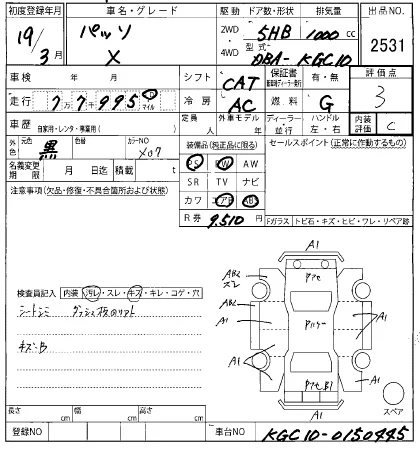 初度登録年月 車名・グレード 駆動 ドア数・形状 排気量 出品NO.
19/3月 パッソ X 2WD 4WD 5HB 1000cc 2531
型式 DBA-KGC10
車検 年 月 シフト CAT 保証書 有・無 評価点 3
走行 77995 マイル 冷房 AC 燃料 G
車歴 自家用・レンタ・事業用( ) 定員 人 外車モデル 年 ディーラー・並行 ハンドル 左・右 内装評価 C
外色 元色 黒 色替 カラーNO X07 装備品(純正品に限る) セールスポイント(正常に作動するもの)
PS PW AW
名義変更期限 月 日迄 積載 t SR TV ナビ
注意事項(欠品・修復・不具合箇所および状態) カワ エアB ABS
R券 9,510円 Fガラス トビ石・キズ・ヒビ・ワレ・リペア跡
検査員記入 内装 汚レ・スレ・キズ・キレ・コゲ・穴
シートシミ
キズ:B
A1
AB2
スレ
AB2
A1
A1
A1
A1
A1
スペア
長さ cm 幅 cm 高さ cm
登録NO 車台NO KGC10-0150445